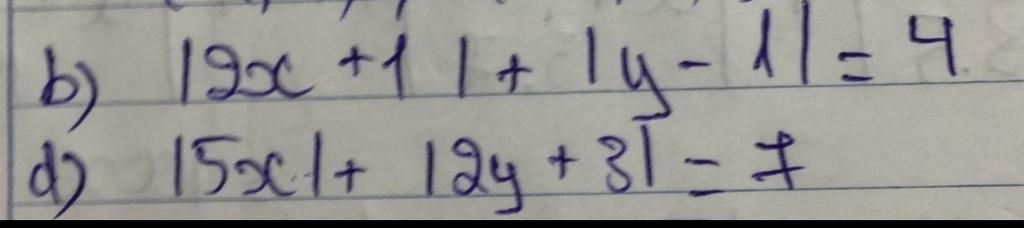 b) |2x + 1| + |y - 1| = 4
d) |5x| + |2y + 3| = 7